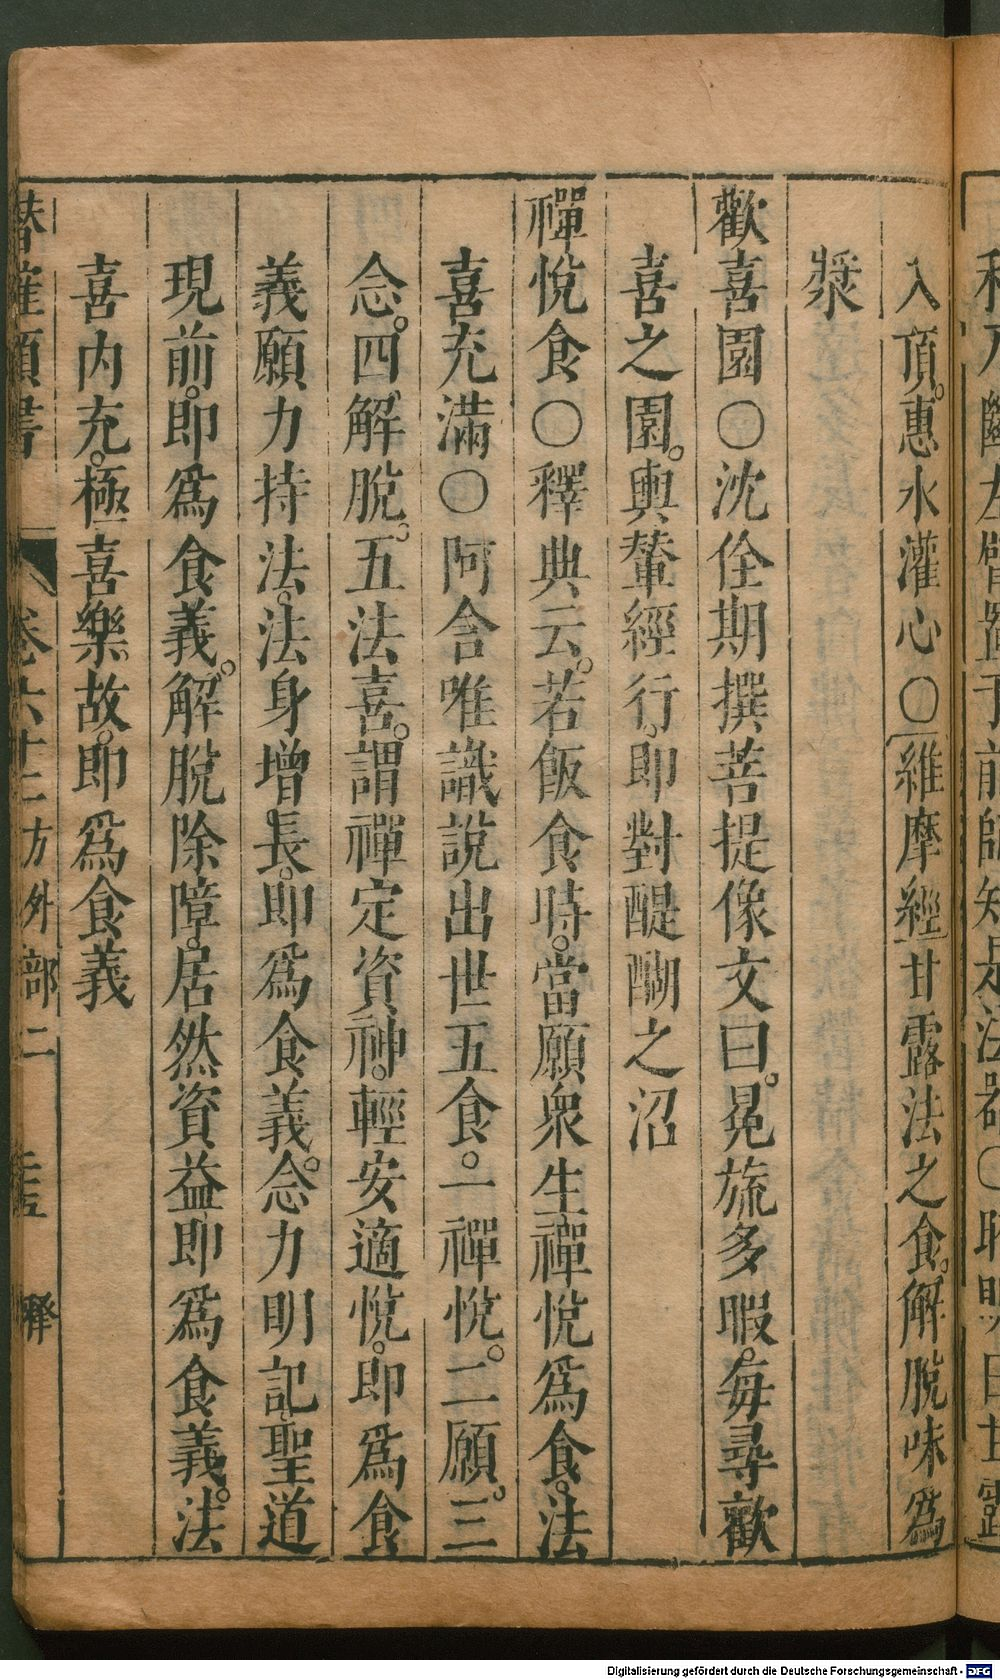 入頂。惠水灌心〇維摩經甘露法之食。解脫味爲
漿
歡喜園〇沈佺期撰菩提像文曰。冕旒多暇。每尋歡
喜之園。輿輦經行。即對醍醐之沼
禪悅食〇釋典云。若飯食時。當願衆生禪悅爲食。法
喜充滿〇阿含唯識說出世五食。一禪悅。二願。三
念。四解脫。五法喜。謂禪定資神。輕安適悅。即爲食
義願力持法。法身增長。即爲食義。念力明記聖道
現前。即爲食義。解脫除障。居然資益即爲食義。法
喜內充。極喜樂故。即爲食義
卷六十二方外部二
釋
Digitalisierung gefördert durch die Deutsche Forschungsgemeinschaft - DFG